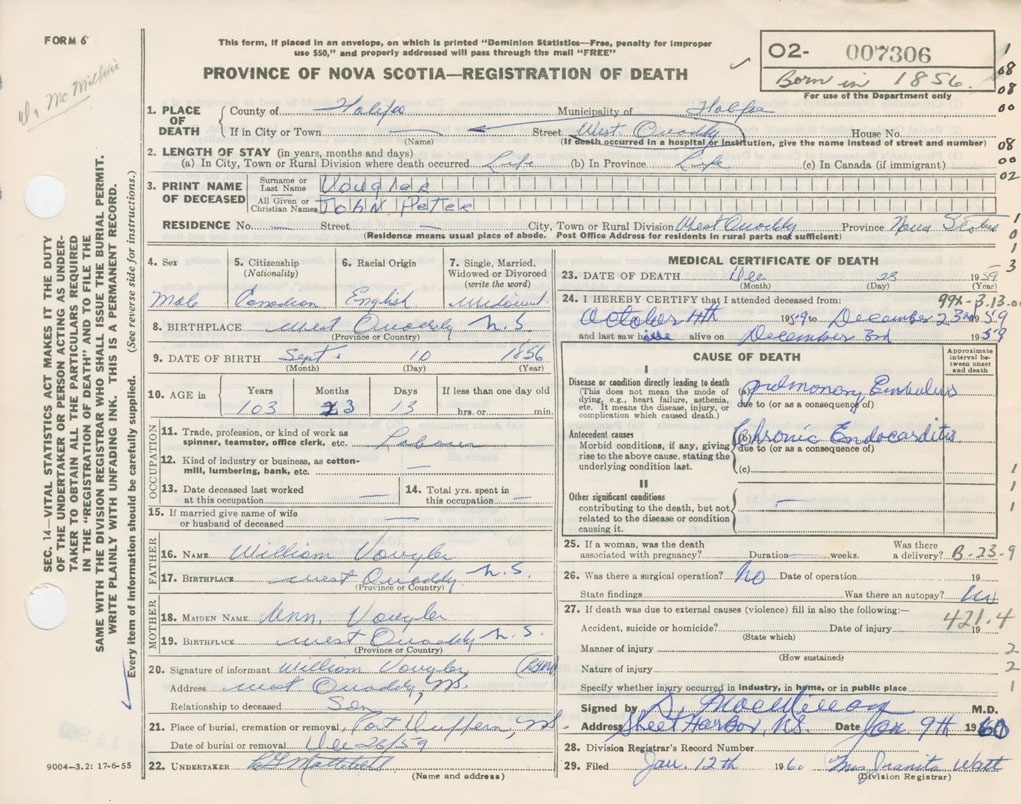 FORM 6
This form, if placed in an envelope, on which is printed "Dominion Statistics—Free, penalty for improper
use $50," and properly addressed will pass through the mail "FREE"
PROVINCE OF NOVA SCOTIA—REGISTRATION OF DEATH
O2- 007306
Born in 1856
For use of the Department only
Dr McMillan
SEC. 14—VITAL STATISTICS ACT MAKES IT THE DUTY
OF THE UNDERTAKER OR PERSON ACTING AS UNDER-
TAKER TO OBTAIN ALL THE PARTICULARS REQUIRED
IN THE "REGISTRATION OF DEATH" AND TO FILE THE
SAME WITH THE DIVISION REGISTRAR WHO SHALL ISSUE THE BURIAL PERMIT.
WRITE PLAINLY WITH UNFADING INK. THIS IS A PERMANENT RECORD.
Every item of information should be carefully supplied. (See reverse side for instructions.)
1. PLACE OF DEATH
County of Halifax Municipality of Halifax
If in City or Town — Street West Quoddy House No.
(Name) (If death occurred in a hospital or institution, give the name instead of street and number)
2. LENGTH OF STAY (in years, months and days)
(a) In City, Town or Rural Division where death occurred Life (b) In Province Life (c) In Canada (if immigrant)
3. PRINT NAME OF DECEASED
Surname or Last Name Vougler
All Given or Christian Names John Peter
RESIDENCE No. — Street — City, Town or Rural Division West Quoddy Province Nova Scotia
(Residence means usual place of abode. Post Office Address for residents in rural parts not sufficient)
4. Sex
Male
5. Citizenship (Nationality)
Canadian
6. Racial Origin
English
7. Single, Married, Widowed or Divorced (write the word)
Widower
8. BIRTHPLACE West Quoddy N.S.
(Province or Country)
9. DATE OF BIRTH Sept. 10 1856
(Month) (Day) (Year)
10. AGE in
Years Months Days If less than one day old
103 3 13 hrs. or min.
OCCUPATION
11. Trade, profession, or kind of work as spinner, teamster, office clerk, etc. Labour
12. Kind of industry or business, as cotton-mill, lumbering, bank, etc. —
13. Date deceased last worked at this occupation —
14. Total yrs. spent in this occupation —
15. If married give name of wife or husband of deceased —
FATHER
16. NAME William Vougler
17. BIRTHPLACE West Quoddy N.S.
(Province or Country)
MOTHER
18. MAIDEN NAME Ann, Vougler
19. BIRTHPLACE West Quoddy N.S.
(Province or Country)
20. Signature of informant William Vougler
Address West Quoddy, N.S.
Relationship to deceased Son
21. Place of burial, cremation or removal, Port Dufferin, N.S.
Date of burial or removal Dec 26/59
22. UNDERTAKER
(Name and address)
9004-3.2: 17-6-55
MEDICAL CERTIFICATE OF DEATH
23. DATE OF DEATH Dec 23 1959
(Month) (Day) (Year)
24. I HEREBY CERTIFY that I attended deceased from:
October 4th 1959 to December 23rd 1959
and last saw h alive on December 3rd 1959
CAUSE OF DEATH
Approximate interval between onset and death
I
Disease or condition directly leading to death
(This does not mean the mode of dying, e.g., heart failure, asthenia, etc. It means the disease, injury, or complication which caused death.)
(a) pulmonary Embolus
due to (or as a consequence of)
Antecedent causes
Morbid conditions, if any, giving rise to the above cause, stating the underlying condition last.
(b) Chronic Endocarditis
due to (or as a consequence of)
(c)
II
Other significant conditions
contributing to the death, but not related to the disease or condition causing it.
—
25. If a woman, was the death associated with pregnancy? Duration — weeks. Was there a delivery? B-23-9
26. Was there a surgical operation? No Date of operation 19
State findings Was there an autopsy? No
27. If death was due to external causes (violence) fill in also the following:—
421.4
Accident, suicide or homicide? Date of injury 19
(State which)
Manner of injury
(How sustained)
Nature of injury
Specify whether injury occurred in industry, in home, or in public place
Signed by D. MacMillan M.D.
Address Sheet Harbor, N.S. Date Jan 9th 1960
28. Division Registrar's Record Number
29. Filed Jan. 12th 1960 Mrs Juanita Watt
(Division Registrar)
1
08
08
00
08
00
02
1
0
1
3
1
1
1
2
2
1